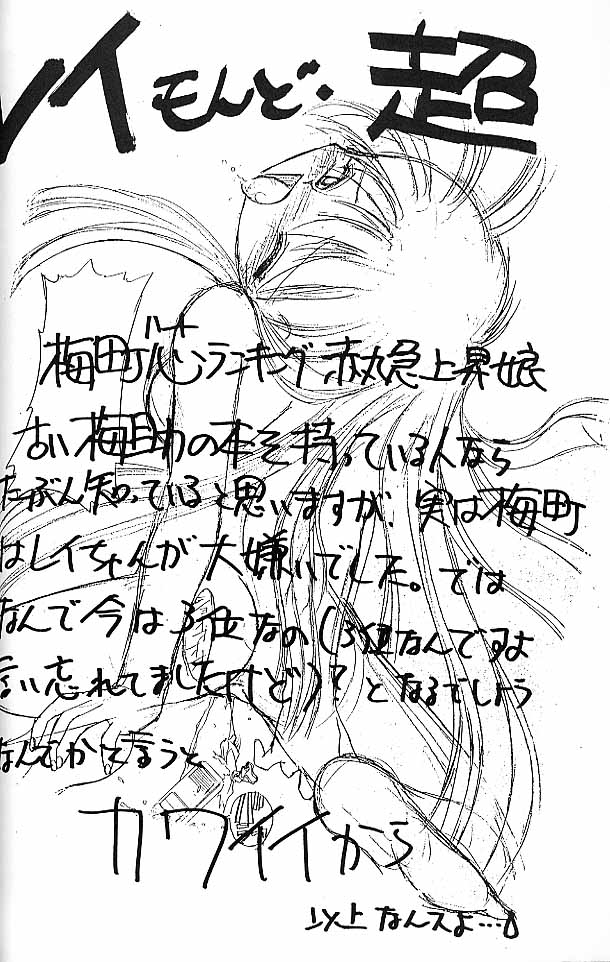 レイモンド・超
梅町心ハートランキング赤丸急上昇娘
古い梅町の本を持っている人なら
たぶん知っていると思いますが、実は梅町
はレイちゃんが大嫌いでした。では
なんで今は3位なの(3位なんですよ
言い忘れてましたけど)?となるでしょう
なんでかと言うと
カワイイから
以上なんスよ…。